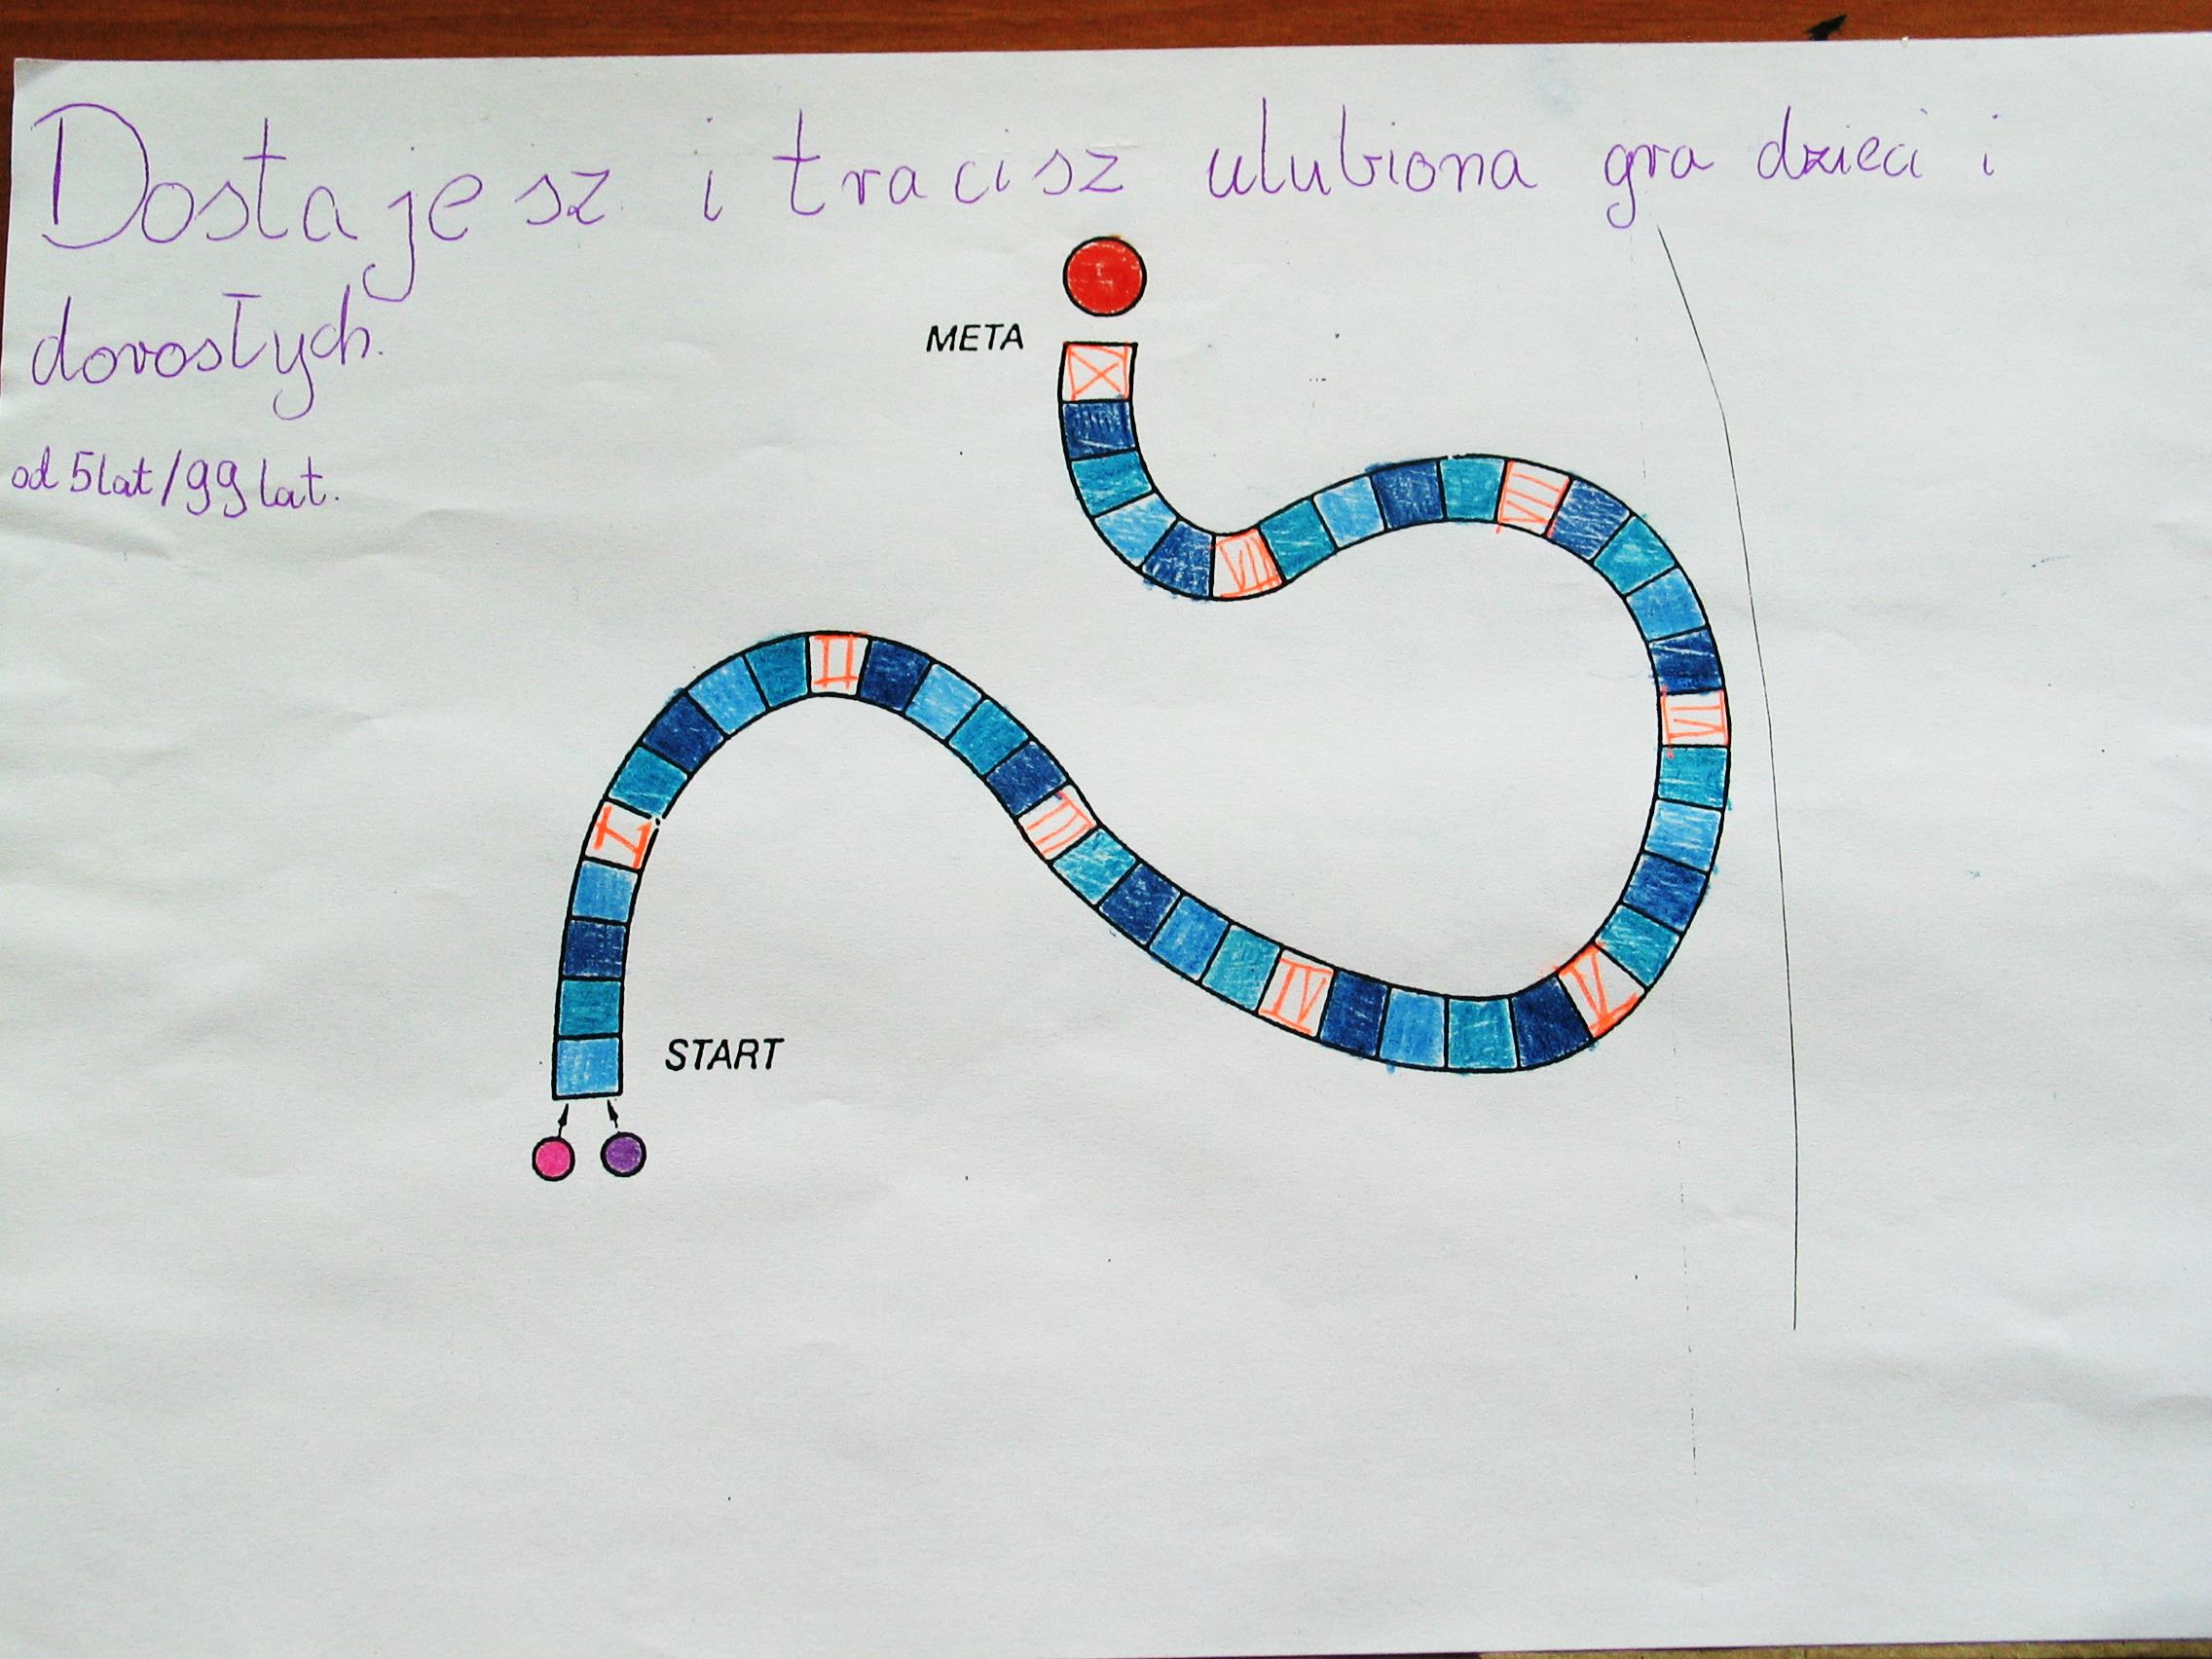 Dostajesz i tracisz ulubiona gra dzieci i
dorosłych.
od 5 lat/99 lat.
META
X
VII
III
VI
II
III
I
IV
V
START